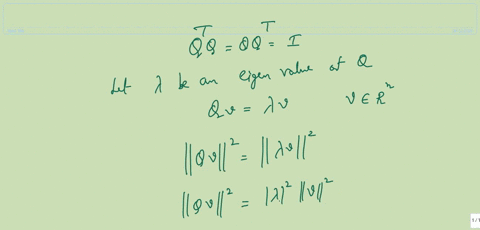 QᵀQ = QQᵀ = I
Let λ be an eigen value of Q
Qv = λv    v ∈ Rⁿ
||Qv||² = ||λv||²
||Qv||² = |λ|² ||v||²
1/1